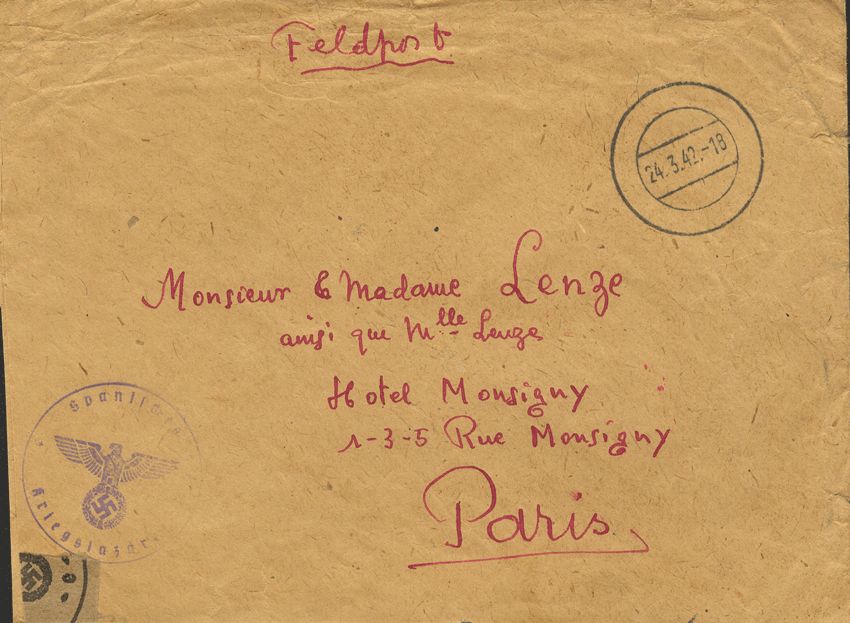 Feldpost
24.3.42.-18
Monsieur & Madame Lenze
ainsi que Mlle Lenze
Hotel Monsigny
1-3-5 Rue Monsigny
Paris
Spanisches
Kriegslazar